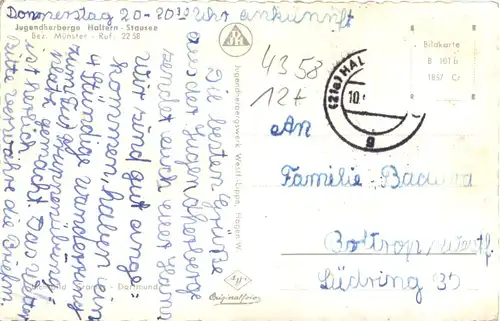 Donnerstag 20-20³⁰ Uhr ankunft
Jugendherberge Haltern - Stausee
Bez. Münster - Ruf: 22 58
Die besten Grüße
aus der Jugendherberge
sendet euch euer
Wir sind gut ange-
kommen, haben ein
4 stündige wanderung
zum
gemacht. Das wetter
ist herlich
bitte die Briem.
Jugendherbergswerk Westf.-Lippe, Hagen W.
Originalfoto
Dortmund
4358
12+
Bildkarte
B 101 b
1857 Cr
(21a) HAL
10.
g
An
Familie Badura
Bottrop/Westf.
Südring 35